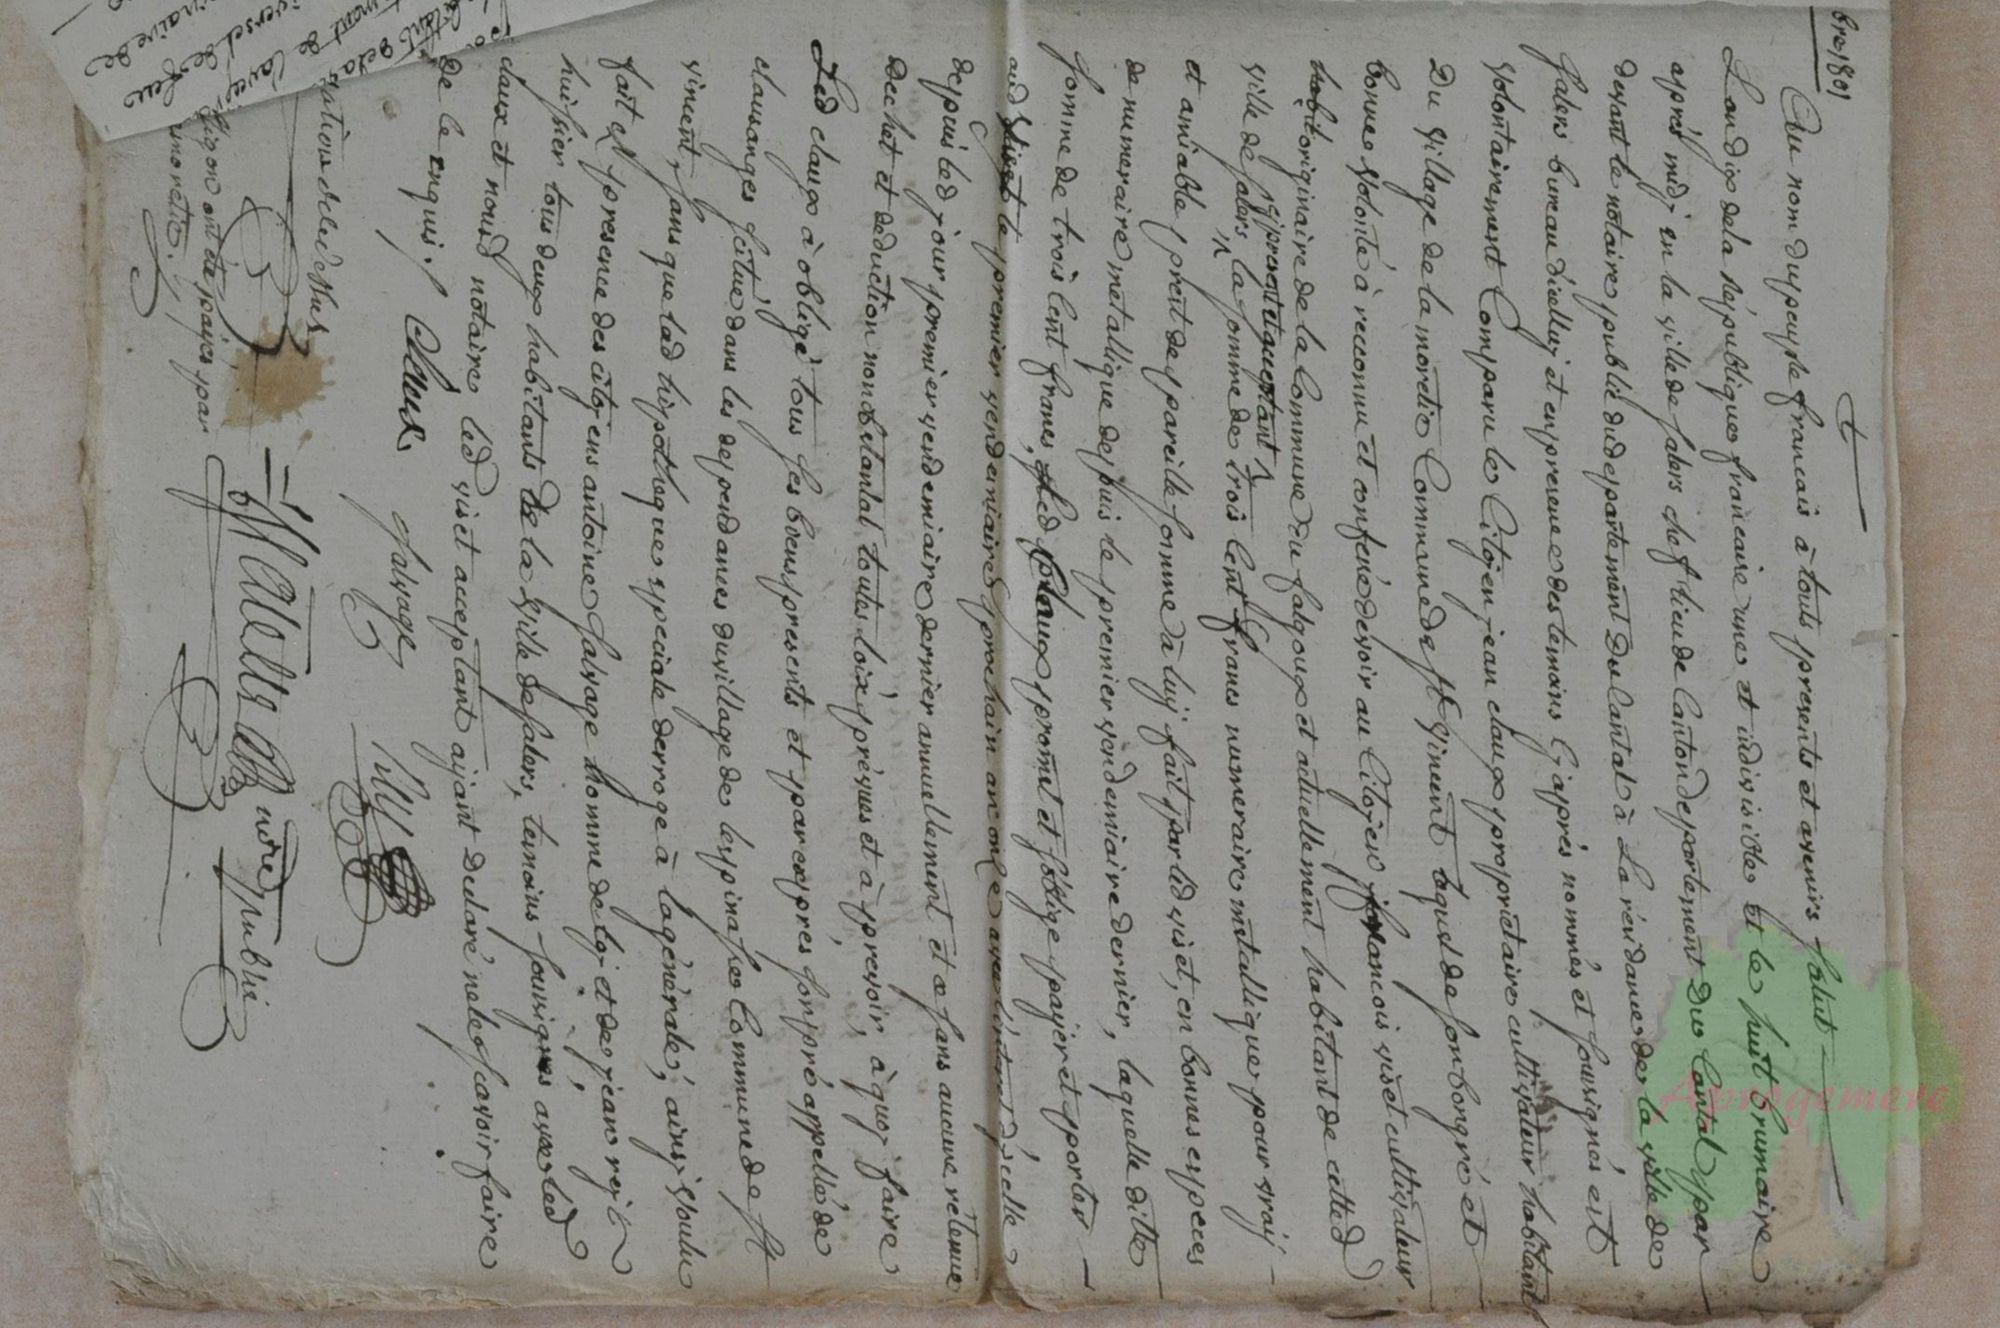 bre 1801
Au nom du peuple francais à touts presents et avenirs salut
L'an dix de la République francaise une et indivisible et le huit brumaire
aprés midy en la ville de salers chef lieu de canton departement Du Cantal par
devant le notaire public du departement Du Cantal à La résidance de la ville de
salers bureau d'icelluy et en presence des temoins cy aprés nommés et sousignés est
volontairement Comparu le Citoyen jean claux proprietaire cultivateur habitant
Du village de la moretie Commune de st vincent lequel de son bon gré et
bonne volonté à reconnu et confessé devoir au Citoyen francois viset cultivateur
originaire de la Commune du falgoux et actuellement habitant de cette d
ville de salers icy present et acceptant la somme de trois cent francs numeraire métallique pour vray
et amiable pret de pareille somme à luy fait par led viset, en bonnes especes
de numeraire métallique depuis le premier vendemiaire dernier, laquelle ditte
somme de trois cent francs, led claux promet et s'oblige payer et porter
aud viset le premier vendemiaire prochain an onze avec l'interet d'icelle
depuis led jour premier vendemiaire dernier annuellement et ce sans aucune retenue
dechet et deduction nonobstantat toutes loix préveues et à prevoir, à quoy faire
Led claux à obligé tous ses biens presents et par expres son pré appellé de
clausanges situé dans les dependances du village de lespinasse Commune de st
vincent, sans que lad hipotheque speciale derroge à la générale, ainsy voulu
fait en presence des citoyens antoine salvage homme de loy et de jean
huissier tous deux habitants de la ville de salers, temoins sousignés avec led
claux et nousd notaire led viset acceptant ayant declaré ne le scavoir faire
de le enquis.
Claux salvage
notre public
ont été payés par